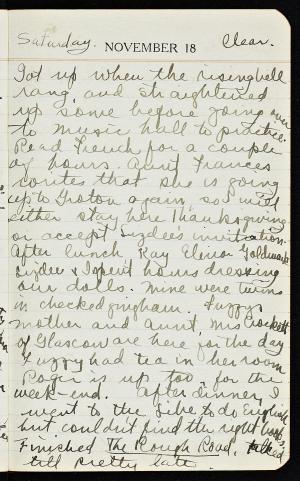 Saturday. NOVEMBER 18 Clear.
Got up when the rising bell
rang, and straightened
up some before going over
to music hall to practice.
Read French for a couple
of hours. Aunt Frances
writes that she is going
up to Groton again, so will
either stay here Thanksgiving
or accept Lizdee's invitation.
After lunch Kay, Elinor Goldmark
Lizdee & I spent hours dressing
our dolls. Mine were twins
in checked gingham. Fuzzy's
mother and aunt, Mrs Crockett
of Glascow are here for the day
Fuzzy had tea in her room
Roger is up too, for the
week-end. After dinner I
went to the Libe to do English
but couldn't find the right books.
Finished The Rough Road, talked
till pretty late.